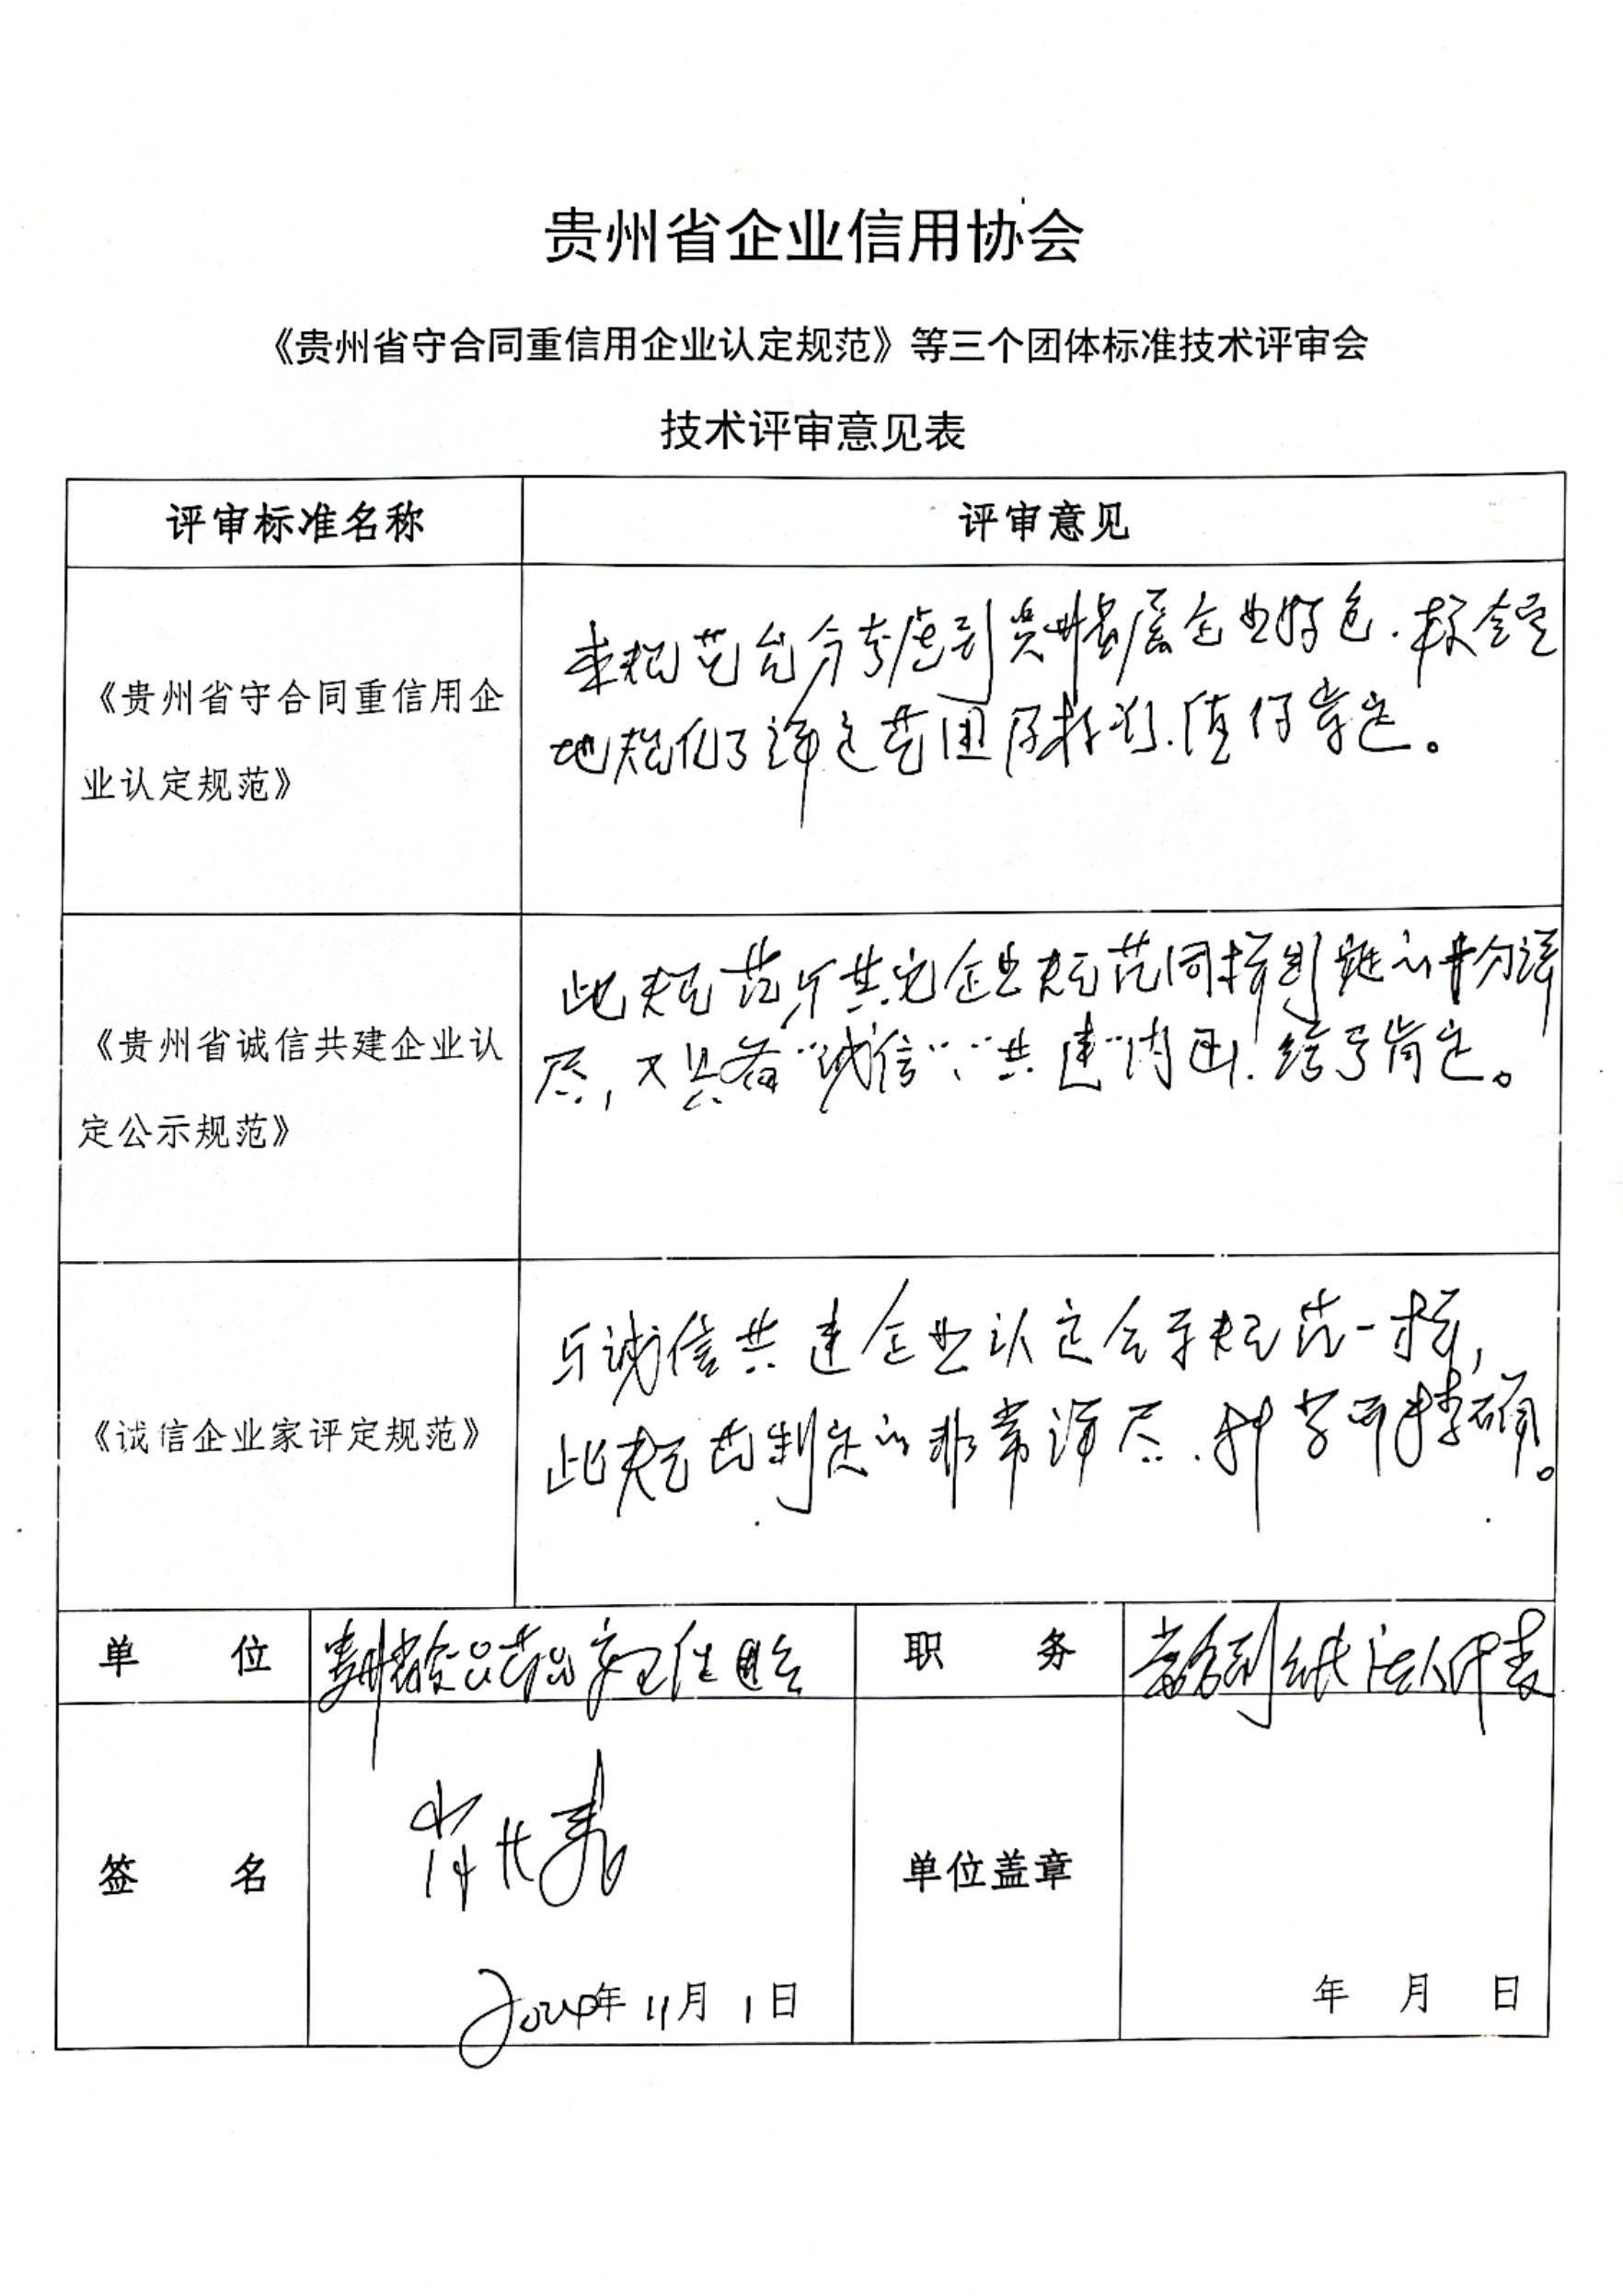 贵州省企业信用协会
《贵州省守合同重信用企业认定规范》等三个团体标准技术评审会
技术评审意见表
评审标准名称
评审意见
《贵州省守合同重信用企
业认定规范》
本规范充分考虑到贵州基层企业特色.较全
地规化了评定范围及标准.值得肯定。
《贵州省诚信共建企业认
定公示规范》
此规范与其它企业规范同样制定的十分详
尽,又具备"诚信"、"共建"内涵.给予肯定。
《诚信企业家评定规范》
与诚信共建企业认定公示规范一样,
此规范制定的非常详尽.科学而精确。
单 位
贵州省食品药品安全促进会
职 务
常务副会长 法人代表
签 名
2024年11月1日
单位盖章
年 月 日